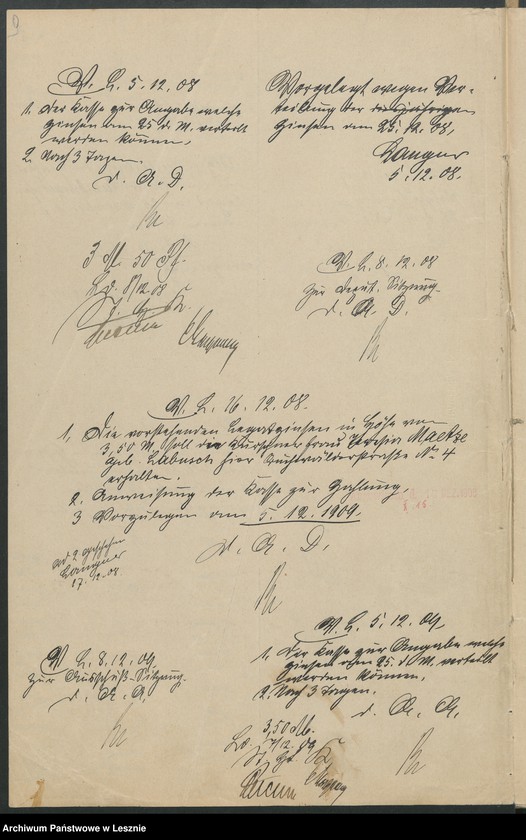 9
V. L. 5. 12. 08
1. Der Kasse zur Angabe welche
Zinsen am 25 d. M. verteilt
werden können.
2. Nach 3 Tagen.
d. A. D.
Vorgelegt wegen Ver-
teilung der diesjährigen
Zinsen den 25. 12. 08,
Langner
5. 12. 08.
3 M. 50 Pf.
Ls. 8/12 08
V. L. 8. 12. 08
zur Deput. Sitzung.
d. A. D.
V. L. 16. 12. 08.
1, Die vorstehenden Legatzinsen in Höhe von
3,50 M. soll die Kürschnerfrau Theresia Maetze
geb. Labusch hier Buchwälderstraße No 4
erhalten.
2. Anweisung der Kasse zur Zahlung,
3 Vorzulegen am 5. 12. 1909.
d. A. D.
ad 2 geschehen
Langner
17. 12. 08
V. L. 8. 12. 09
zur Ausschuß-Sitzung.
d. A. A.
V. L. 5. 12. 09
1. Der Kasse zur Angabe welche
Zinsen am 25. d. M. verteilt
werden können.
2. Nach 3 Tagen.
d. A. A.
3,50 M.
Ls. 7/12. 09
Archiwum Państwowe w Lesznie